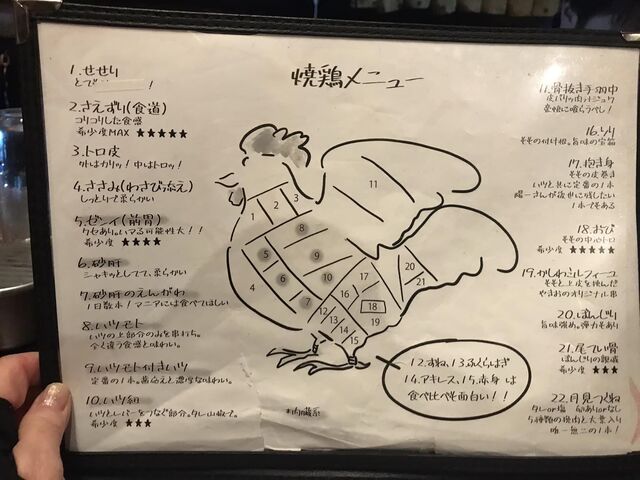 焼鶏メニュー
1.せせり
とで !
2.さえずり(食道)
コリコリした食感
希少度MAX ★★★★★
3.トロ皮
外はカリッ!中はトロッ!
4.ささみ(わさび添え)
しっとりで柔らかい
5.ゼンイ(前胃)
クセあり。ハマる可能性大!!
希少度 ★★★★
6.砂肝
シャキッとしてて、柔らかい
7.砂肝のえんがわ
1日数本!マニアには食べてほしい
8.ハツモト
ハツの上部分のみを串打ち。
全く違う食感と味わい。
9.ハツモト付きハツ
定番の1本。歯応えと濃厚な味わい。
10.ハツ紐
ハツとレバーをつなぐ部分。タレ山椒で。
希少度 ★★★
11.骨抜き手羽中
皮パリッ肉ジュワ
豪快に喰らうべし!
16.ソリ
そその付け根。旨味の宝箱
17.抱き身
そその皮巻き
ハツと共に定番の1本
陽一さんが後世に残したい
1本でもある
18.おび
そその中心トロ
希少度 ★★★★★
19.かしわミルフィーユ
そそと上皮を挟んだ
やきおのオリジナル串
20.ぼんじり
旨味強め。弾力もあり
21.尾てい骨
ぼんじりの親戚
希少度 ★★★
22.月見つくね
タレor塩 卵ありorなし
5種類の挽肉と大葉入り
唯一無二の1本!
12.すね、13.ふくらはぎ
14.アキレス、15.赤身 は
食べ比べ半面白い!!
*内臓系
1
2
3
4
5
6
7
8
9
10
11
12
13
14
15
16
17
18
19
20
21